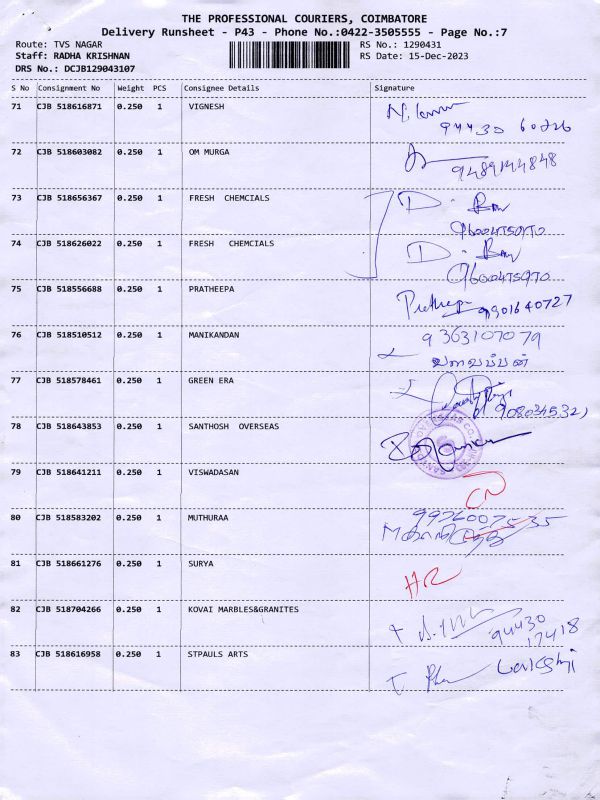 THE PROFESSIONAL COURIERS, COIMBATORE
Delivery Runsheet - P43 - Phone No.:0422-3505555 - Page No.:7
Route: TVS NAGAR
RS No.: 1290431
Staff: RADHA KRISHNAN
RS Date: 15-Dec-2023
DRS No.: DCJB129043107
S No Consignment No Weight PCS Consignee Details Signature
71 CJB 518616871 0.250 1 VIGNESH
94430 60226
72 CJB 518603082 0.250 1 OM MURGA
9489144848
73 CJB 518656367 0.250 1 FRESH CHEMCIALS
9600475970
74 CJB 518626022 0.250 1 FRESH CHEMCIALS
9600475970
75 CJB 518556688 0.250 1 PRATHEEPA
9901640727
76 CJB 518510512 0.250 1 MANIKANDAN
9363107079
77 CJB 518578461 0.250 1 GREEN ERA
78 CJB 518643853 0.250 1 SANTHOSH OVERSEAS
79 CJB 518641211 0.250 1 VISWADASAN
CN
80 CJB 518583202 0.250 1 MUTHURAA
81 CJB 518661276 0.250 1 SURYA
HR
82 CJB 518704266 0.250 1 KOVAI MARBLES&GRANITES
94430
17418
83 CJB 518616958 0.250 1 STPAULS ARTS